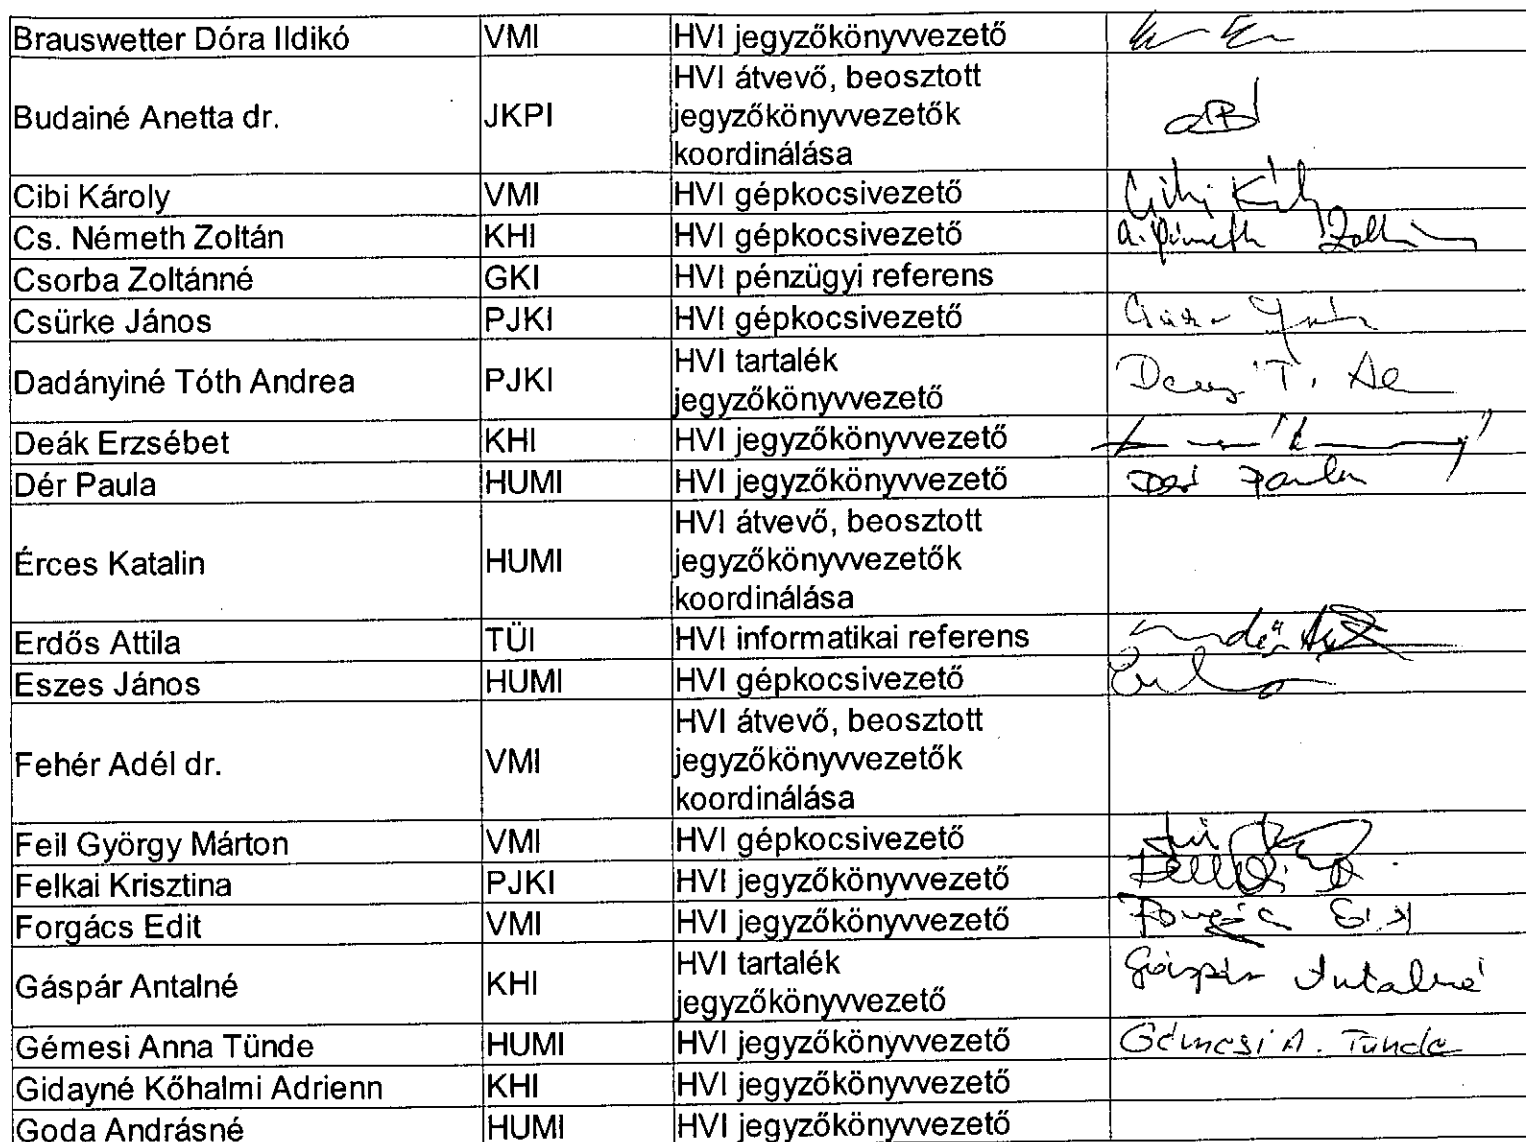 Brauswetter Dóra Ildikó VMI HVI jegyzőkönyvvezető
Budainé Anetta dr. JKPI HVI átvevő, beosztott
jegyzőkönyvvezetők
koordinálása
Cibi Károly VMI HVI gépkocsivezető
Cs. Németh Zoltán KHI HVI gépkocsivezető
Csorba Zoltánné GKI HVI pénzügyi referens
Csürke János PJKI HVI gépkocsivezető
Dadányiné Tóth Andrea PJKI HVI tartalék
jegyzőkönyvvezető
Deák Erzsébet KHI HVI jegyzőkönyvvezető
Dér Paula HUMI HVI jegyzőkönyvvezető Dér Paula
Érces Katalin HUMI HVI átvevő, beosztott
jegyzőkönyvvezetők
koordinálása
Erdős Attila TÜI HVI informatikai referens
Eszes János HUMI HVI gépkocsivezető
Fehér Adél dr. VMI HVI átvevő, beosztott
jegyzőkönyvvezetők
koordinálása
Feil György Márton VMI HVI gépkocsivezető
Felkai Krisztina PJKI HVI jegyzőkönyvvezető
Forgács Edit VMI HVI jegyzőkönyvvezető
Gáspár Antalné KHI HVI tartalék
jegyzőkönyvvezető Gáspár Antalné
Gémesi Anna Tünde HUMI HVI jegyzőkönyvvezető Gémesi A. Tünde
Gidayné Kőhalmi Adrienn KHI HVI jegyzőkönyvvezető
Goda Andrásné HUMI HVI jegyzőkönyvvezető